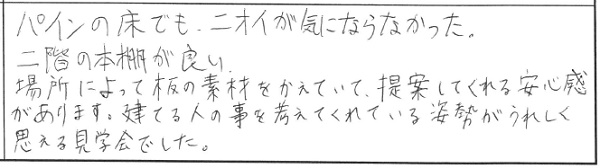 パインの床でも、ニオイが気にならなかった。
二階の本棚が良い、
場所によって板の素材をかえていて、提案してくれる安心感
があります。建てる人の事を考えてくれている姿勢がうれしく
思える見学会でした。